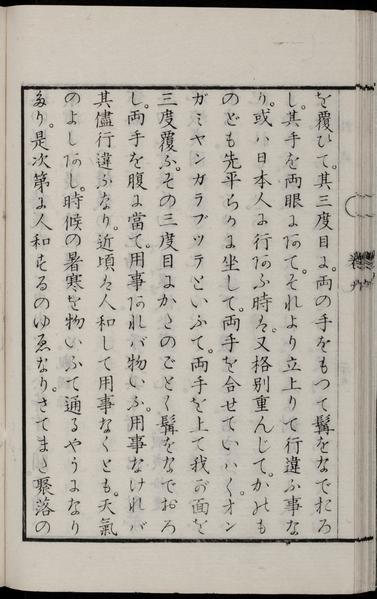 を覆ひて。其三度目に。両の手をもつて髯をなでおろ
し。其手を両眼にあて。それより立上りて行違ふ事な
り。或ハ日本人に行あふ時ハ。又格別重んじて。かのも
のども先平らかに坐して。両手を合せていハく。オン
ガミヤンガラプツテといふて。両手を上て我が面を
三度覆ふ。その三度目にかさのごとく髯をなでおろ
し。両手を腹に當て。用事あれバ物いふ。用事なけれバ
其儘行違ふなり。近頃ハ人和して用事なくとも。天氣
のよしあし。時候の暑寒を物いふて通るやうになり
たり。是次第に人和するのゆゑなり。さてまた聚落の